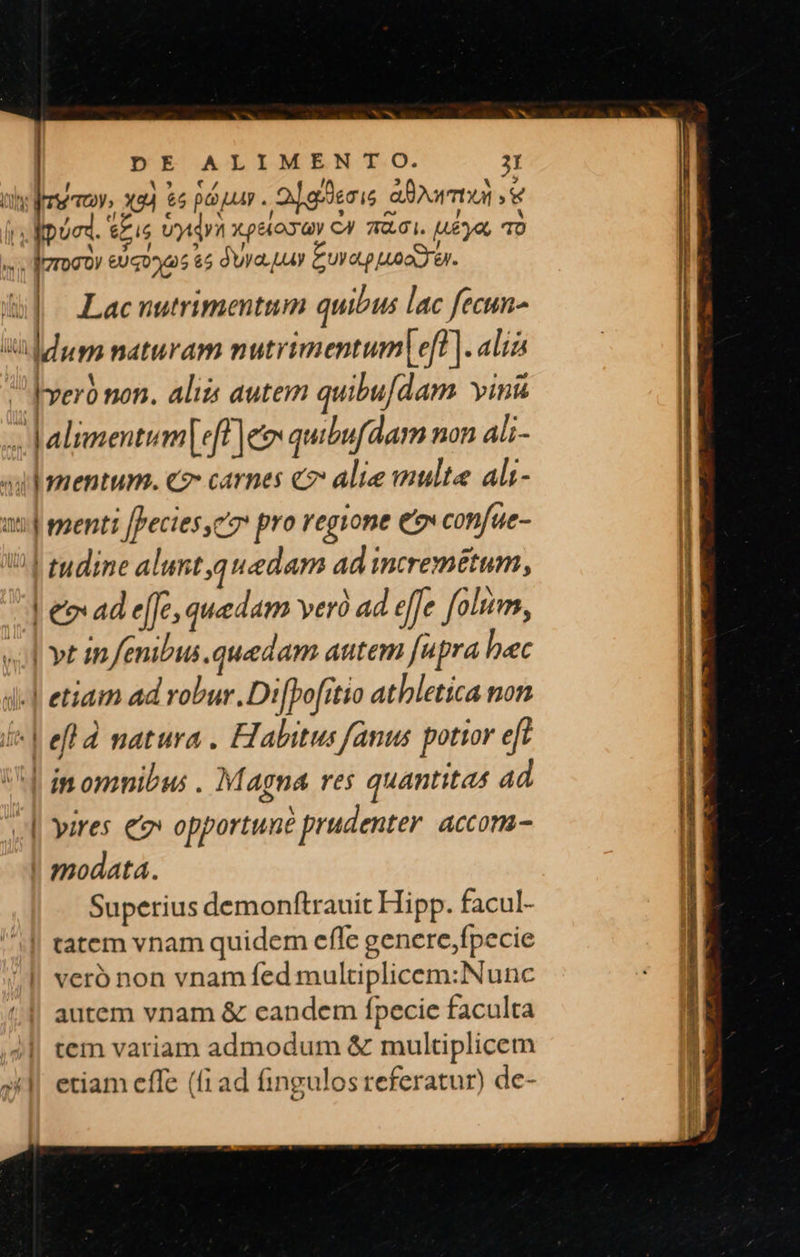 DE ALIMENTO. 31
τούτων, καὶ ἐς ῥώμην. Διάθεσις ἀθλητικὴ, οὐ
φύσει. ἕξις ὑγιεινὴ κρείσσων ἐν πᾶσι. μέγα, τὸ
ποσὸν εὐστόχως ἐς δύναμιν ξυναρμοσθέν.
Lac nutrimentum quibus lac ſecun-
dum naturam nutrimentum[eſt]. aliis
verò non. aliis autem quibuſdam vinū
alimentum[eſt]& quibuſdam non ali-
mentum. & carnes & aliæ multæ ali-
menti ſpecies, & pro regione & conſue-
tudine alunt, quædam ad incremētum,
& ad eſſe, quædam verò ad eſſe ſolùm,
vt in ſenibus. quædam autem ſupra hæc
etiam ad robur. Diſpoſitio athletica non
eſt à natura. Habitus ſanus potior eſt
in omnibus. Magna res quantitas ad
vires & opportunè prudenter accom-
modata.
Superius demonſtrauit Hipp. facul-
tatem vnam quidem eſſe genere, ſpecie
verò non vnam ſed multiplicem: Nunc
autem vnam & eandem ſpecie faculta
tem variam admodum & multiplicem
etiam eſſe (ſi ad ſingulos referatur) de-